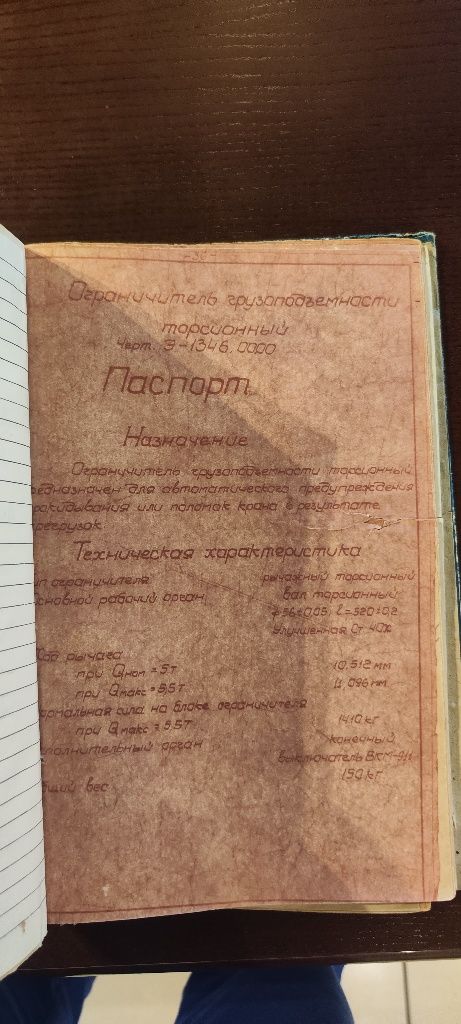 - 36 -
Ограничитель грузоподъемности
торсионный
Черт. Э-1346.0000
Паспорт
Назначение
Ограничитель грузоподъемности торсионный
едназначен для автоматического предупреждения
рокидывания или поломок крана в результате
регрузок
Техническая характеристика
ип ограничителя рычажный торсионный
сновной рабочий орган вал торсионный
56±0,05, ℓ=520±0,2
Улучшенная Ст 40х
Ход рычага
при Qном = 5т 10,512 мм
при Qмакс = 5,5т 11,096 мм
ормальная сила на блоке ограничителя
при Qмакс = 5,5т 1410 кг
сполнительный орган конечный
выключатель ВКМ-911
бщий вес 150 кг